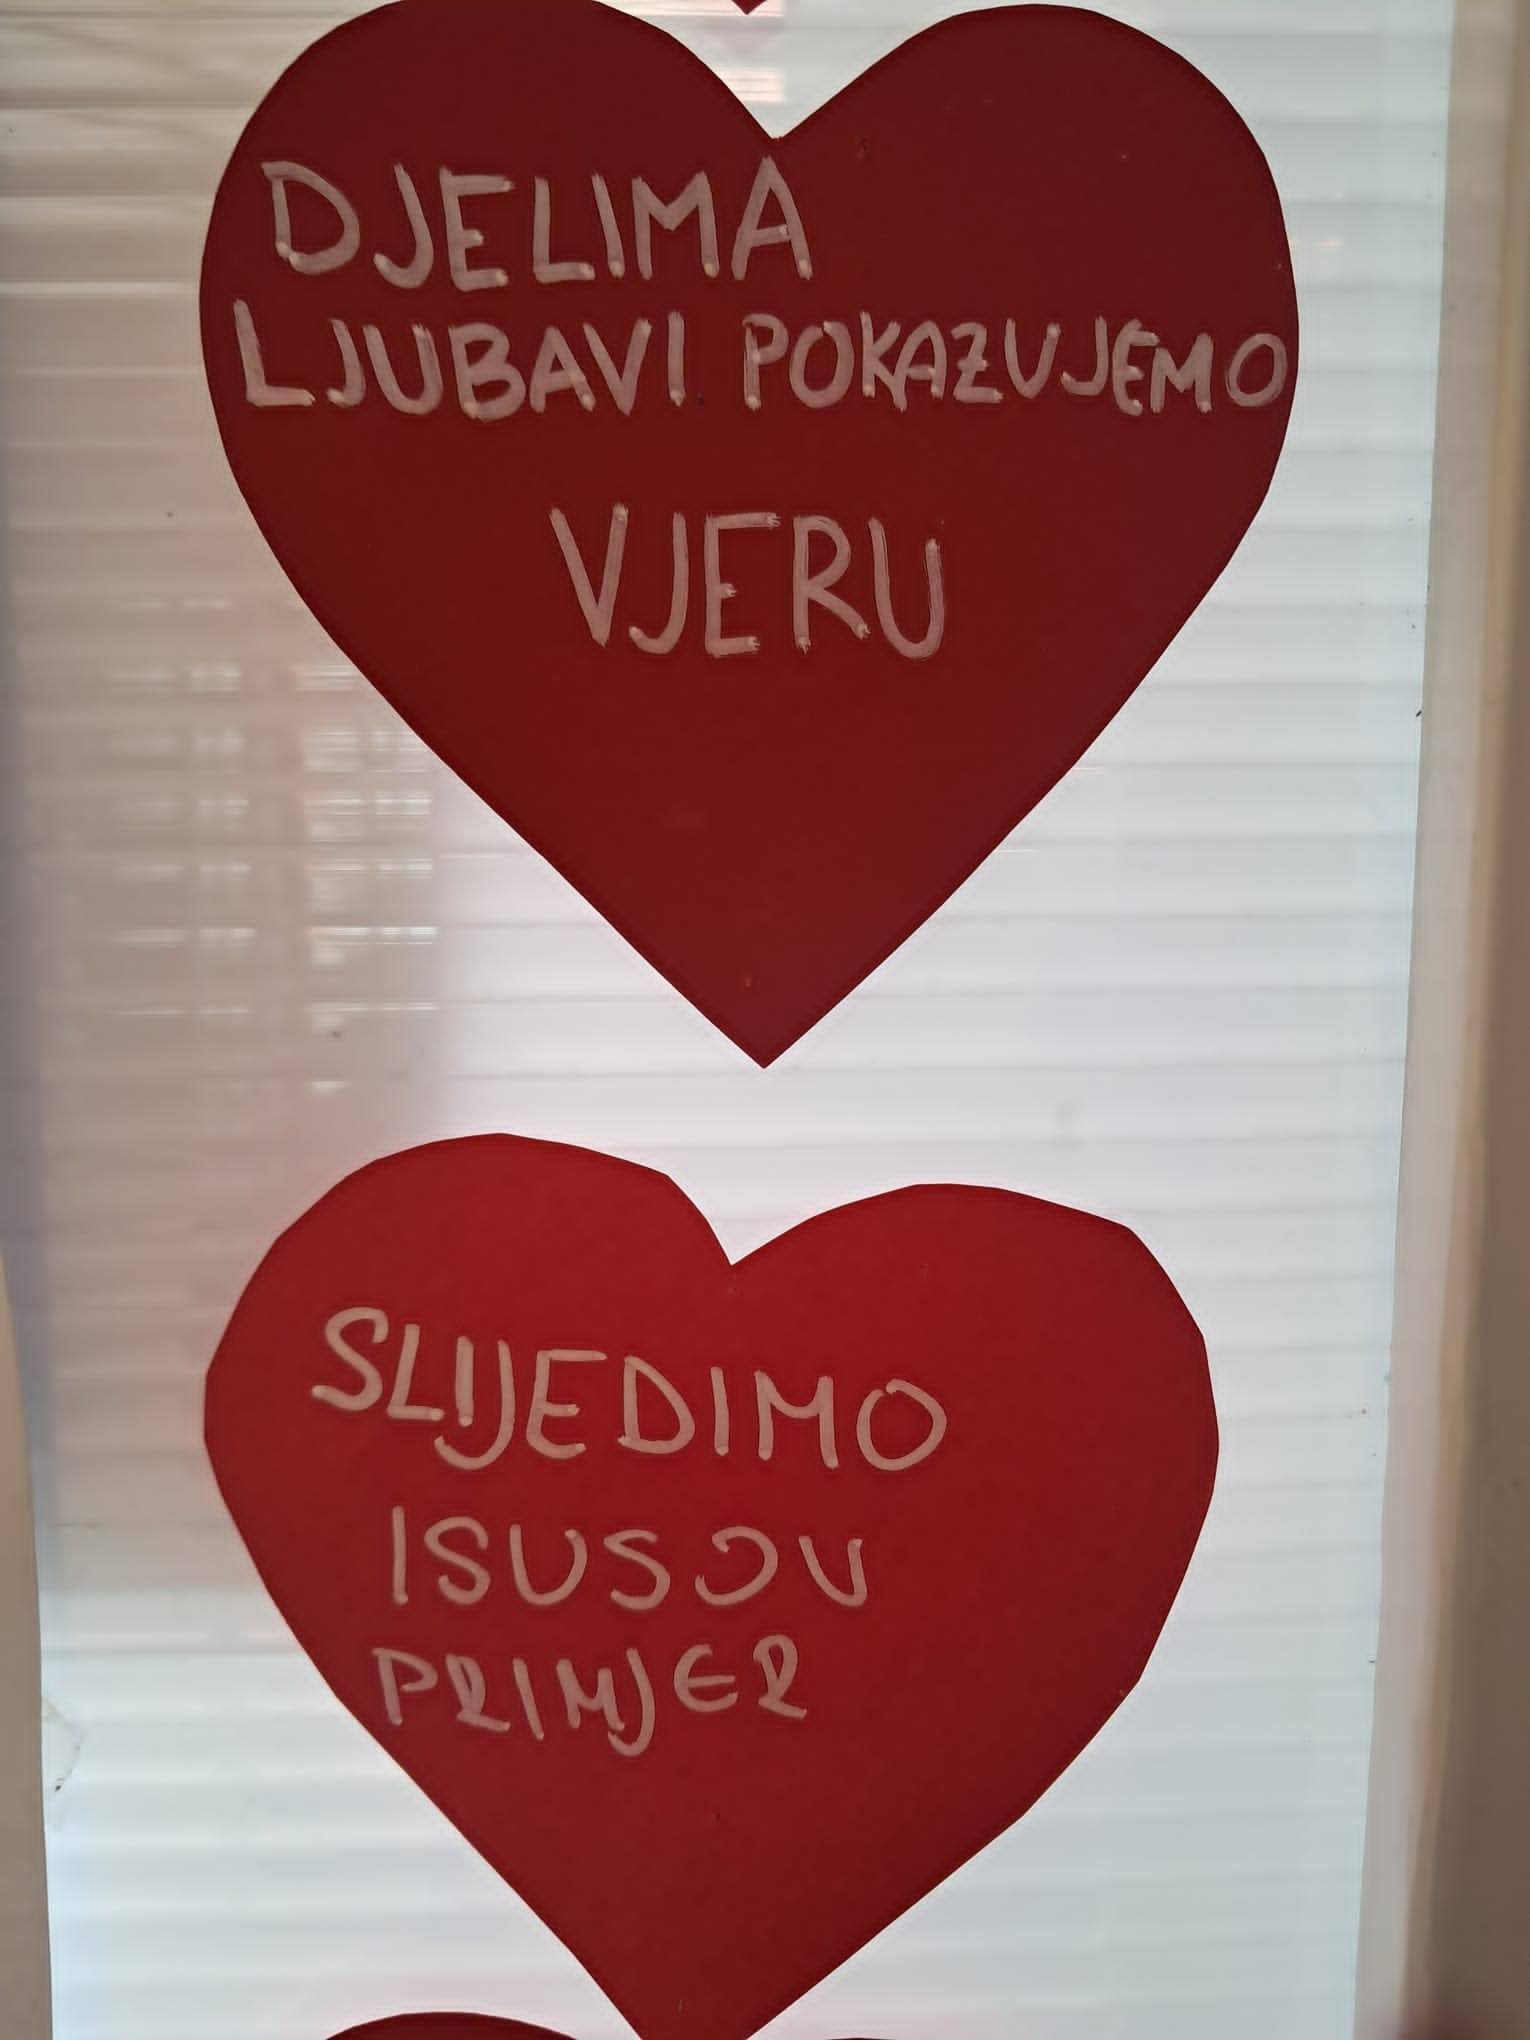 DJELIMA
LJUBAVI POKAZUJEMO
VJERU
SLIJEDIMO
ISUSOV
PRIMJER